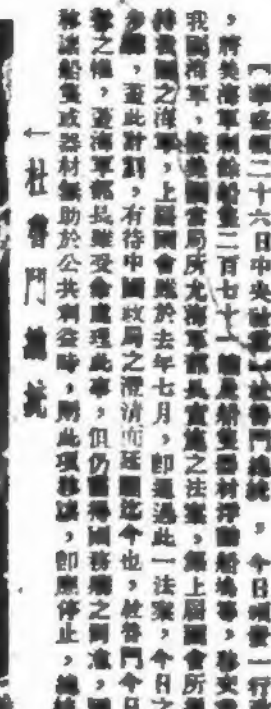 二十六日中央社電 杜魯門總統，今日頒發一行
，將美海軍剩餘船隻二百七十一艘及船隻器材浮動船塢等，移交
我國海軍，美國當局所允海軍部長實施之法案，上屆國會所
之海軍，上屆國會既於去年七月，即通過此一法案，今日之
，此計劃，有待中國政局之澄清而延擱迄今也，杜魯門今日
之權，海軍部長雖受命處理此事，但仍須得國務院之同意，國
移讓船隻或器材無助於公共利益時，則此項移讓，即應停止，總統
←杜魯門總統